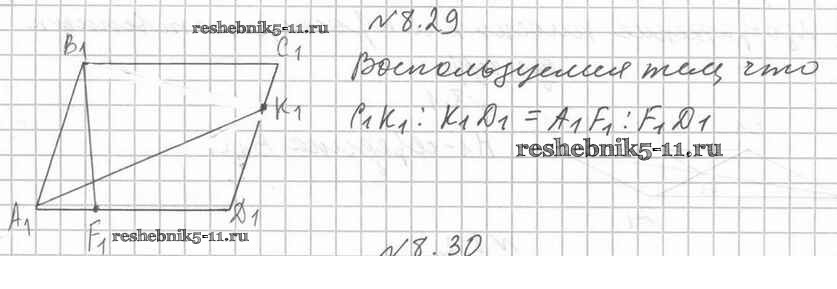 №8.29
reshebnik5-11.ru
B1 C1
Воспользуемся тем что
K1
C1K1 : K1D1 = A1F1 : F1D1
reshebnik5-11.ru
A1 F1 D1
reshebnik5-11.ru
№8.30